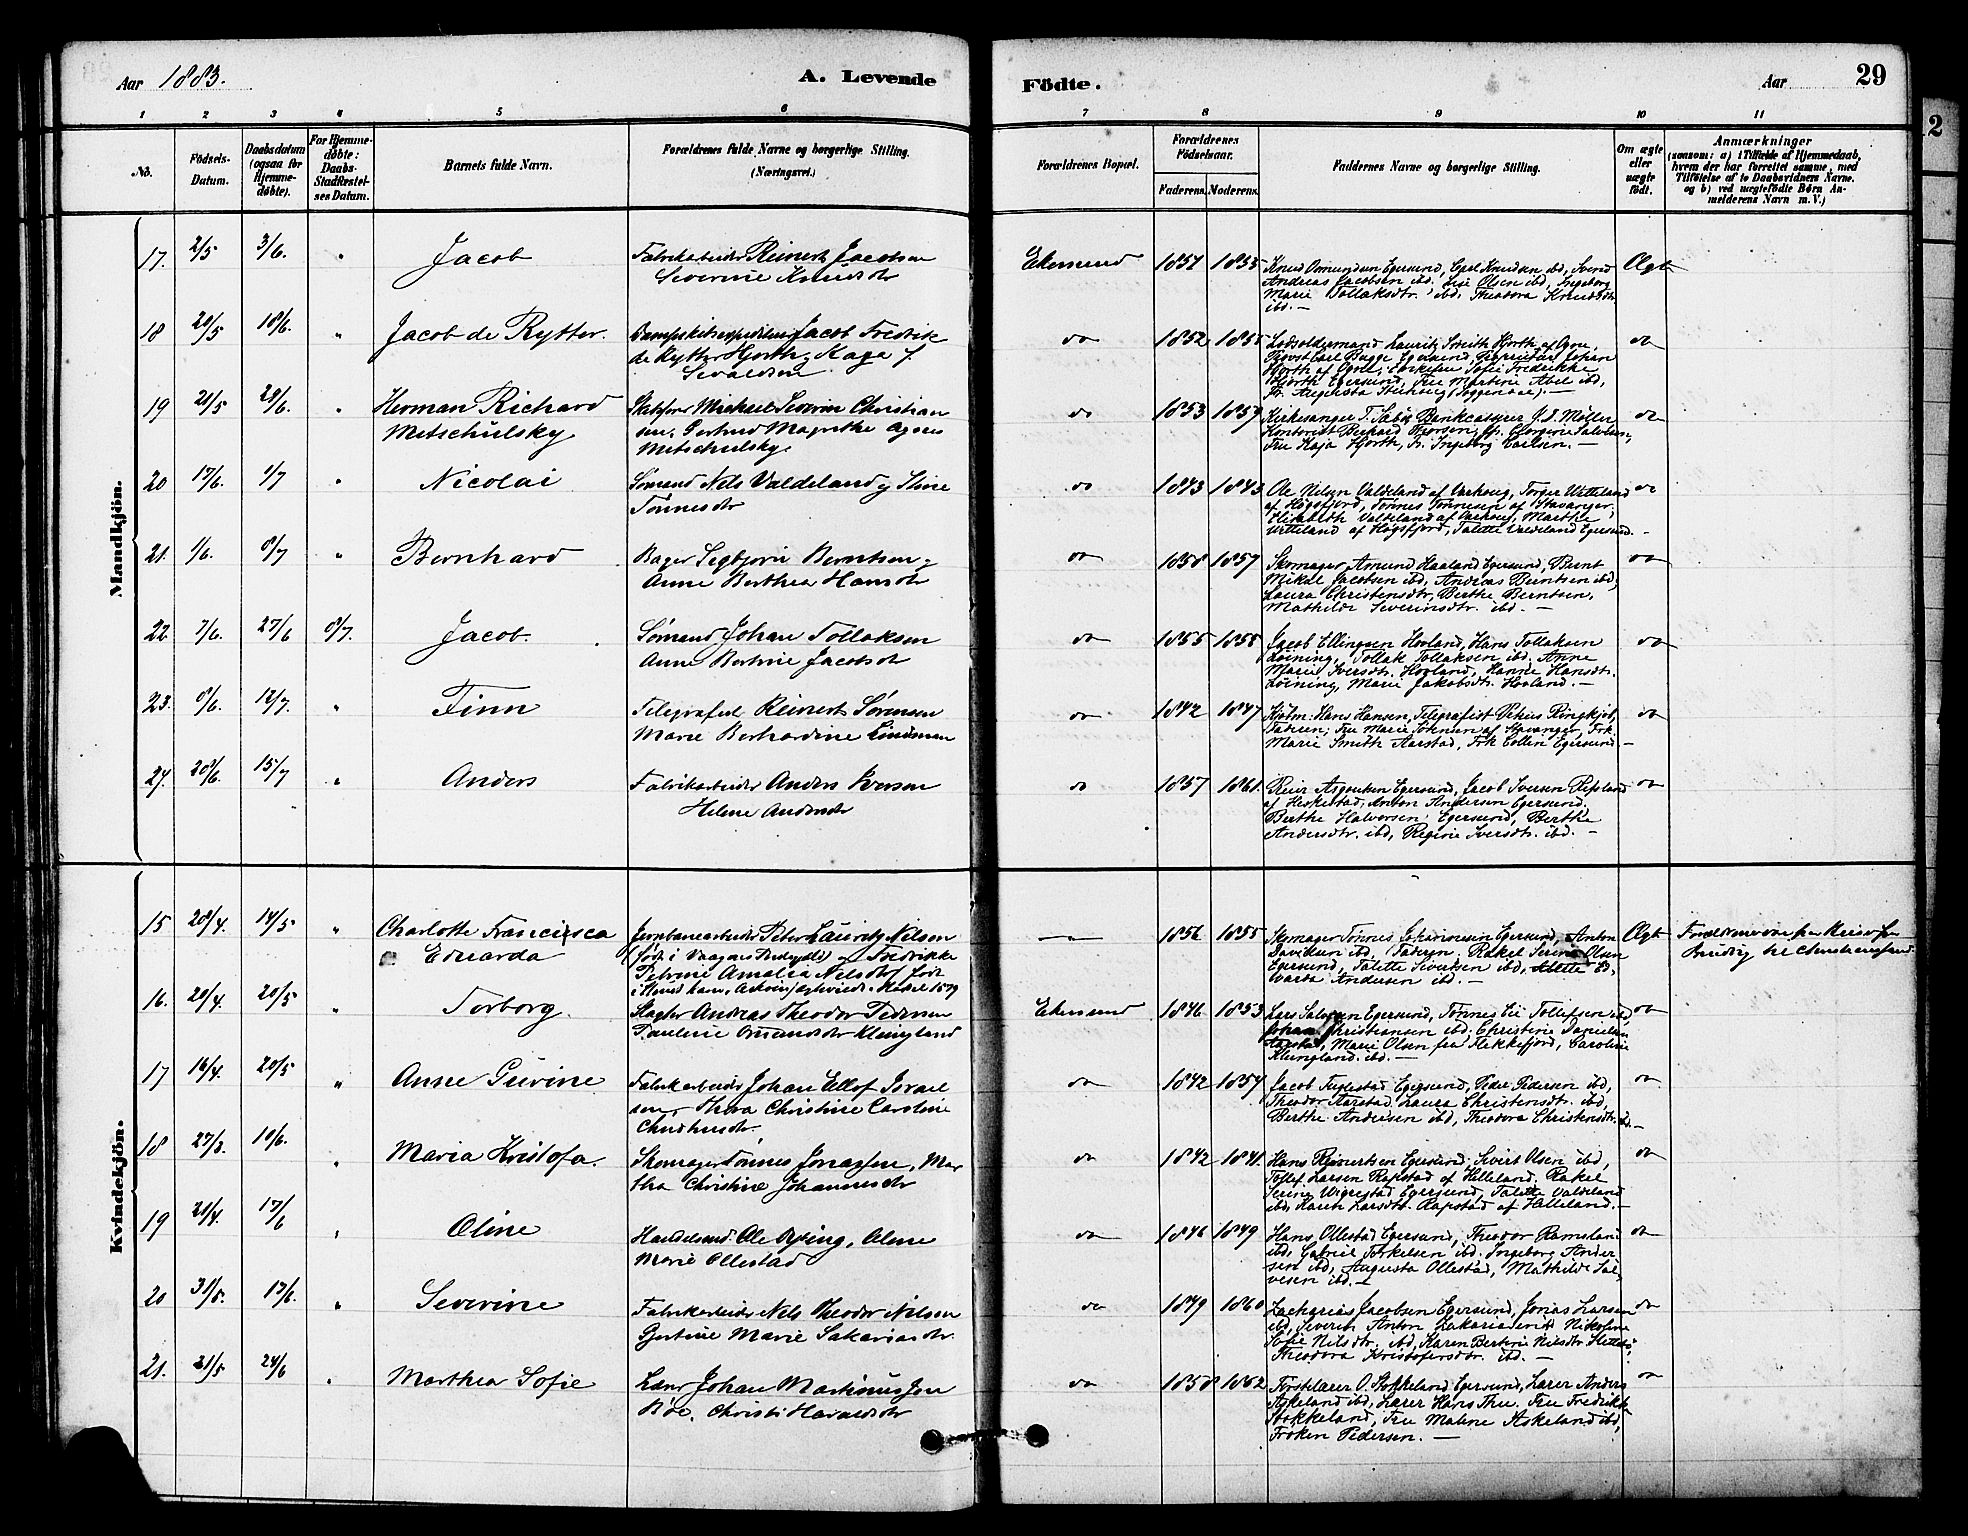 Aar 1883.
A. Levende
Födte.
Aar
29
1 2 3 4 5 6 7 8 9 10 11
No.
Födsels-
Datum.
Daabsdatum
(ogsaa for
Hjemme-
døbte).
For Hjemme-
døbte:
Daabs-
Stadfæstel-
ses Datum.
Barnets fulde Navn.
Forældrenes fulde Navne og borgerlige Stilling.
(Næringsvei.)
Forældrenes Bopæl.
Forældrenes
Födselsaar.
Faderens. Moderens.
Faddernes Navne og borgerlige Stilling.
Om ægte
eller
uægte
født.
Anmærkninger
(saasom: a) i Tilfælde af Hjemmedaab,
hvem der har forrettet samme, med
Tilföielse af to Daabsvidners Navne.
og b) ved uægtefødte Börn An-
melderens Navn m. V.)
Mandkjön.
17. 2/5 3/6. " Jacob
Fabrikarbeider Reinert Jacobsen
Severine Knudsdtr
Ekersund 1851 1855
Knud Omundsen Egersund, Carl Knudsen ibd, Svend
Andreas Jacobsen ibd. Lise Olsen ibd, Ingeborg
Marie Tollaksdtr. ibd, Theodora Knudsdtr
ibd. —
Ægt
18 20/5 10/6. " Jacob de Rytter.
Dampskibsexpeditør Jacob Fredrik
de Rytter Hjorth, Kaja f
Sevaldsen
do 1852 1855
Lodsoldermand Lauritz Smith Hjorth af Ogne,
Provst Carl Bugge Egersund, Proprietær Johan
Hjorth af Ogne, Enkefru Sofie Fredrikke
Hjorth Egersund, Fru Martine Abel ibd,
Fr. Augusta Stenberg (Soggendal). —
do
19 20/5 24/6. " Herman Richard
Mitschulsky
Skibsfører Michael Severin Christian
sen, Gertrud Magrethe Agnes
Mitschulsky.
do 1853 1857
Kirkesanger T. Sæbø, Bankcasserer J. S. Møller
Kontorist Bernhard Thorsen, Fr. Georgine Salvesen,
Fru Kaja Hjorth, Fr. Ingeborg Carlsen. —
do
20 17/6. 1/7 " Nicolai
Sømand Nils Valdeland og Stine
Tønnesdtr
do 1843 1843
Ole Nilsen Valdeland af Varhoug, Torger Wetteland
af Högsfjord, Tønnes Tønnesen af Stavanger.
Elisabeth Valdeland af Varhoug, Marthe
Wetteland af Högsfjord, Talette Valdeland Egersund. —
do
21. 1/6. 8/7 " Bernhard
Bager Segbjørn Berntsen,
Anne Berthea Hansdtr
do 1858 1857
Skomager Amund Haaland Egersund, Bernt
Mikal Jacobsen ibd, Andreas Berntsen ibd,
Laura Christensdtr, Berthe Berntsen,
Mathilde Severinsdtr. ibd. —
do
22. 7/6. 27/6 8/7. Jacob.
Sømand Johan Tollaksen
Anne Bertine Jacobsdtr
do 1855 1858
Jacob Ellingsen Hovland, Hans Tollaksen
Løining, Tollak Tollaksen ibd, Anne
Marie Iversdtr. Hovland, Hanne Hansdtr.
Løining, Marie Jakobsdtr. Hovland. —
do
23. 8/6. 12/7. " Finn
Telegrafist Reinert Sørensen
Marie Bernardine Lindeman
do 1842 1847
Kjøbm: Hans Hansen, Telegrafist Vetius Ringkjøb,
Faderen, Fru Marie Johnsen af Stavanger, Frk.
Marie Smith Aarstad, Frk Collin Egersund. —
do
24. 20/6. 15/7 " Anders
Fabrikarbeider Anders Iversen
Helene Andersdtr
do 1857 1861.
Reier Asgoutsen Egersund, Jacob Iversen Refsland
af Heskestad, Anton Andersen Egersund,
Berthe Halvorsen Egersund, Berthe
Andersdtr. ibd, Regine Iversdtr. ibd. —
do
Kvindekjön.
15 20/4. 14/5 " Charlotte Francisca
Eduarda
Jernbanearbeider Peter Lauritz Nilsen
Petrine Amalia Nilsdtr, født
— 1856 1855
Skomager Tønnes Johannesen Egersund, Anton
Davidsen ibd, Faderen. Rakel Serine Olsen
Egersund, Talette Sivertsen ibd, Ed-
varda Andersen ibd. —
Ægt
16. 20/4. 20/5 " Torborg.
Slagter Andreas Theodor Pedersen
Pauline Omundsdtr Klungland
Ekersund 1846 1853
Lars Salvesen Egersund, Tønnes Eie Tollefsen ibd,
Johan Christiansen ibd. Christine Danielsen
Aarstad, Marie Olsen fra Flekkefjord, Caroline
Klungland. ibd. —
do
17 16/4. 20/5 " Anne Gurine
Fabrikarbeider Johan Ellof Israel
sen, Thora Christine Caroline
Christensdtr.
do 1842 1857
Jacob Fuglestad Egersund, Peder Pedersen ibd,
Theodor Aarstad, Laura Christensdtr. ibd,
Berthe Andersen ibd, Theodora Christensdtr. ibd. —
do
18 27/3. 10/6. " Maria Kristofa.
Skomager Tønnes Jonassen, Mar
tha Christine Johannesdtr
do 1842 1841.
Hans Reinertsen Egersund, Sivert Olsen ibd,
Tollef Larsen Rapstad af Helleland. Rakel
Serine Wigrestad Egersund, Talette Valdeland
ibd, Karen Larsdtr. Rapstad af Helleland. —
do
19 20/4. 17/6 " Oline
Handelsmd. Ole Røsing, Oline
Marie Ollestad
do 1846 1849
Hans Ollestad Egersund, Theodor Ramsland
ibd, Gabriel Torkelsen ibd. Ingeborg Ander
sen ibd, Augusta Ollestad, Mathilde Sal-
vesen ibd. —
do
20 31/5. 17/6. " Severine
Fabrikarbeider Nils Theodor Nilsen
Gjertine Marie Sakariasdtr.
do 1849 1860
Zacharias Jacobsen Egersund, Jonas Larsen
ibd, Severin Anton Zakariasen ibd Nikoline
Sofie Nilsdtr. ibd, Karen Bertine Nilsdtr Slettebø,
Theodora Kristofersdtr. ibd. —
do
21. 31/5 24/6 " Marthea Sofie
Lærer Johan Martinus Jen
Bøe, Christi Haraldsdtr
do 1858 1862
Førstelærer O. Stokkeland Egersund, Lærer Anders
Askeland ibd, Lærer Hans Thu. Fru Fredrikke
Stokkeland, Fru Maline Askeland ibd,
Frøken Pedersen. —
do